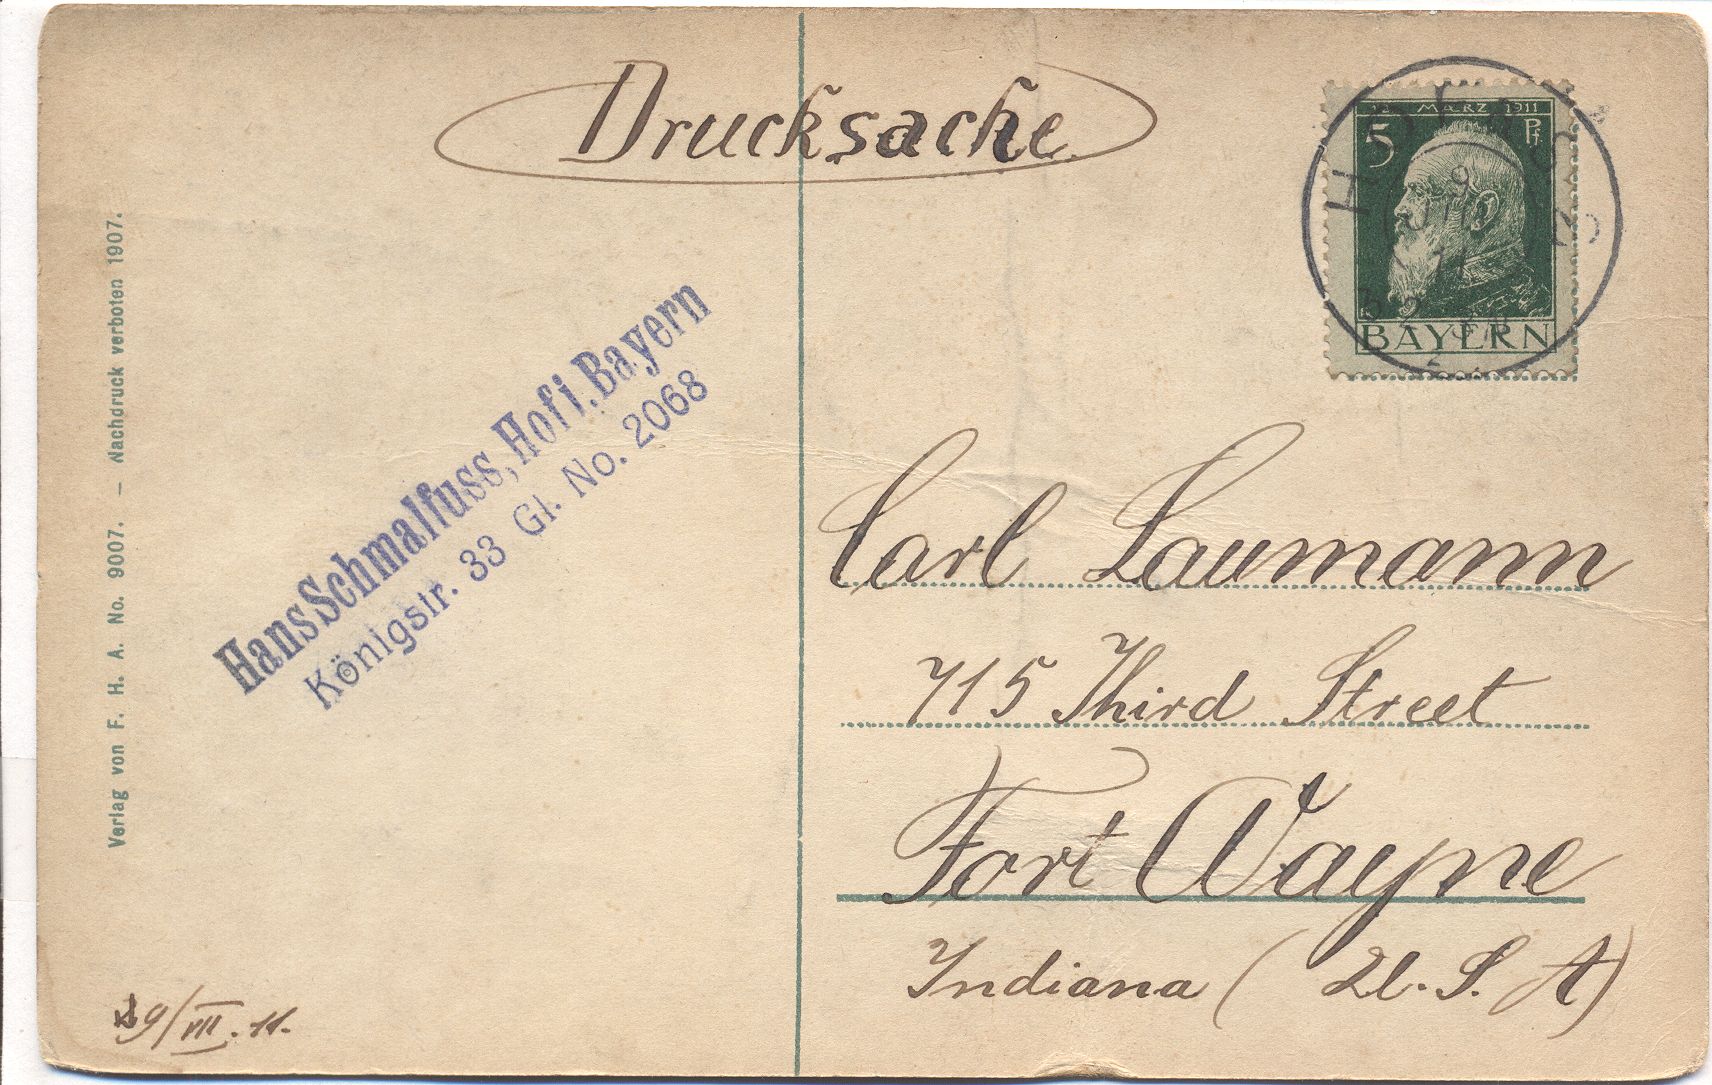 Drucksache
12. MÆRZ 1911
5 Pf.
BAYERN
Verlag von F. H. A. No. 9007. – Nachdruck verboten 1907.
Hans Schmalfuss, Hof i. Bayern
Königstr. 33 Gl. No. 2068
Carl Laumann
715 Third Street
Fort Wayne
Indiana (U. S. A)
9/VIII. 11.